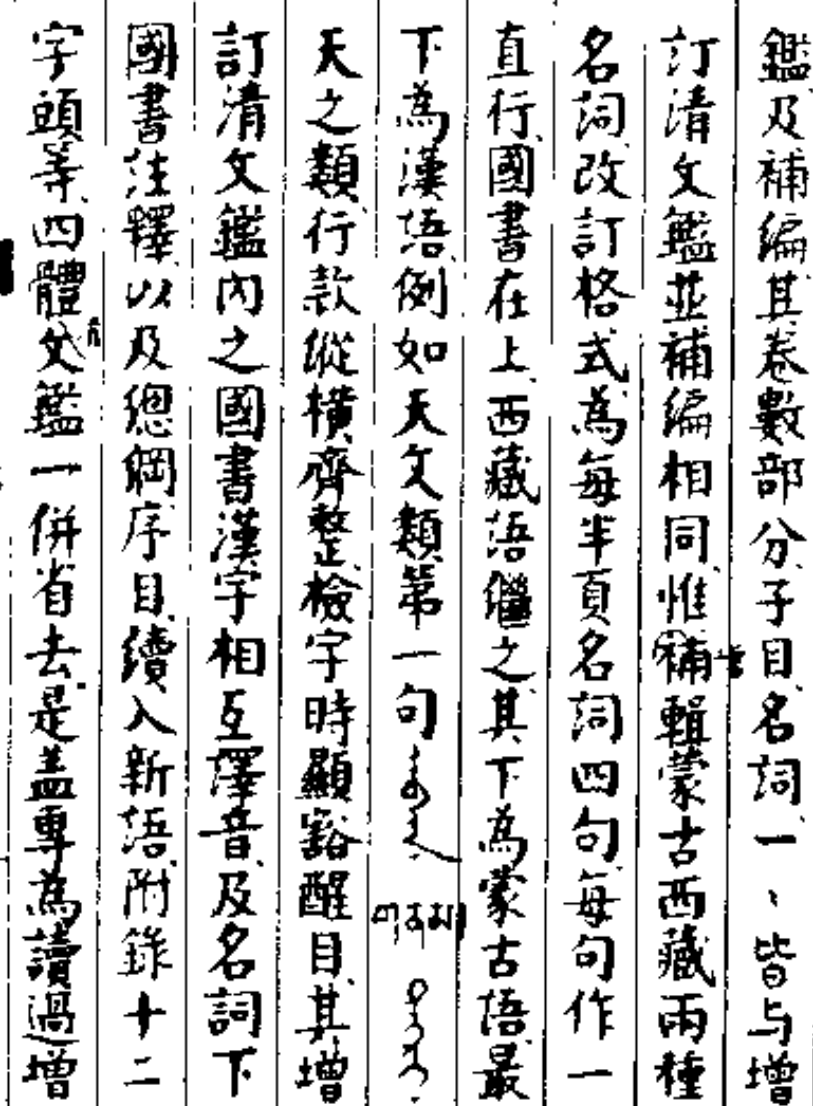 鑑及補編其卷數部分子目名詞一、皆与增
訂清文鑑並補編相同惟補輯蒙古西藏兩種
名詞改訂格式為每半頁名詞四句每句作一
直行國書在上西藏語繼之其下為蒙古語最
下為漢語例如天文類第一句ᠠᠪ�ᡴᠠ གནམ ᠲᠩᠷᠢ
天之類行款縱橫齊整檢字時顯豁醒目其增
訂清文鑑內之國書漢字相互譯音及名詞下
國書注釋以及總綱序目續入新語附錄十二
字頭等四體文鑑一併省去是盖專為讀過增